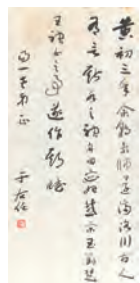 黄初三年余朝京師還濟洛川古人
有言斯水之神名曰宓妃感宋玉對楚
王神女之事遂作斯賦
正
于右任